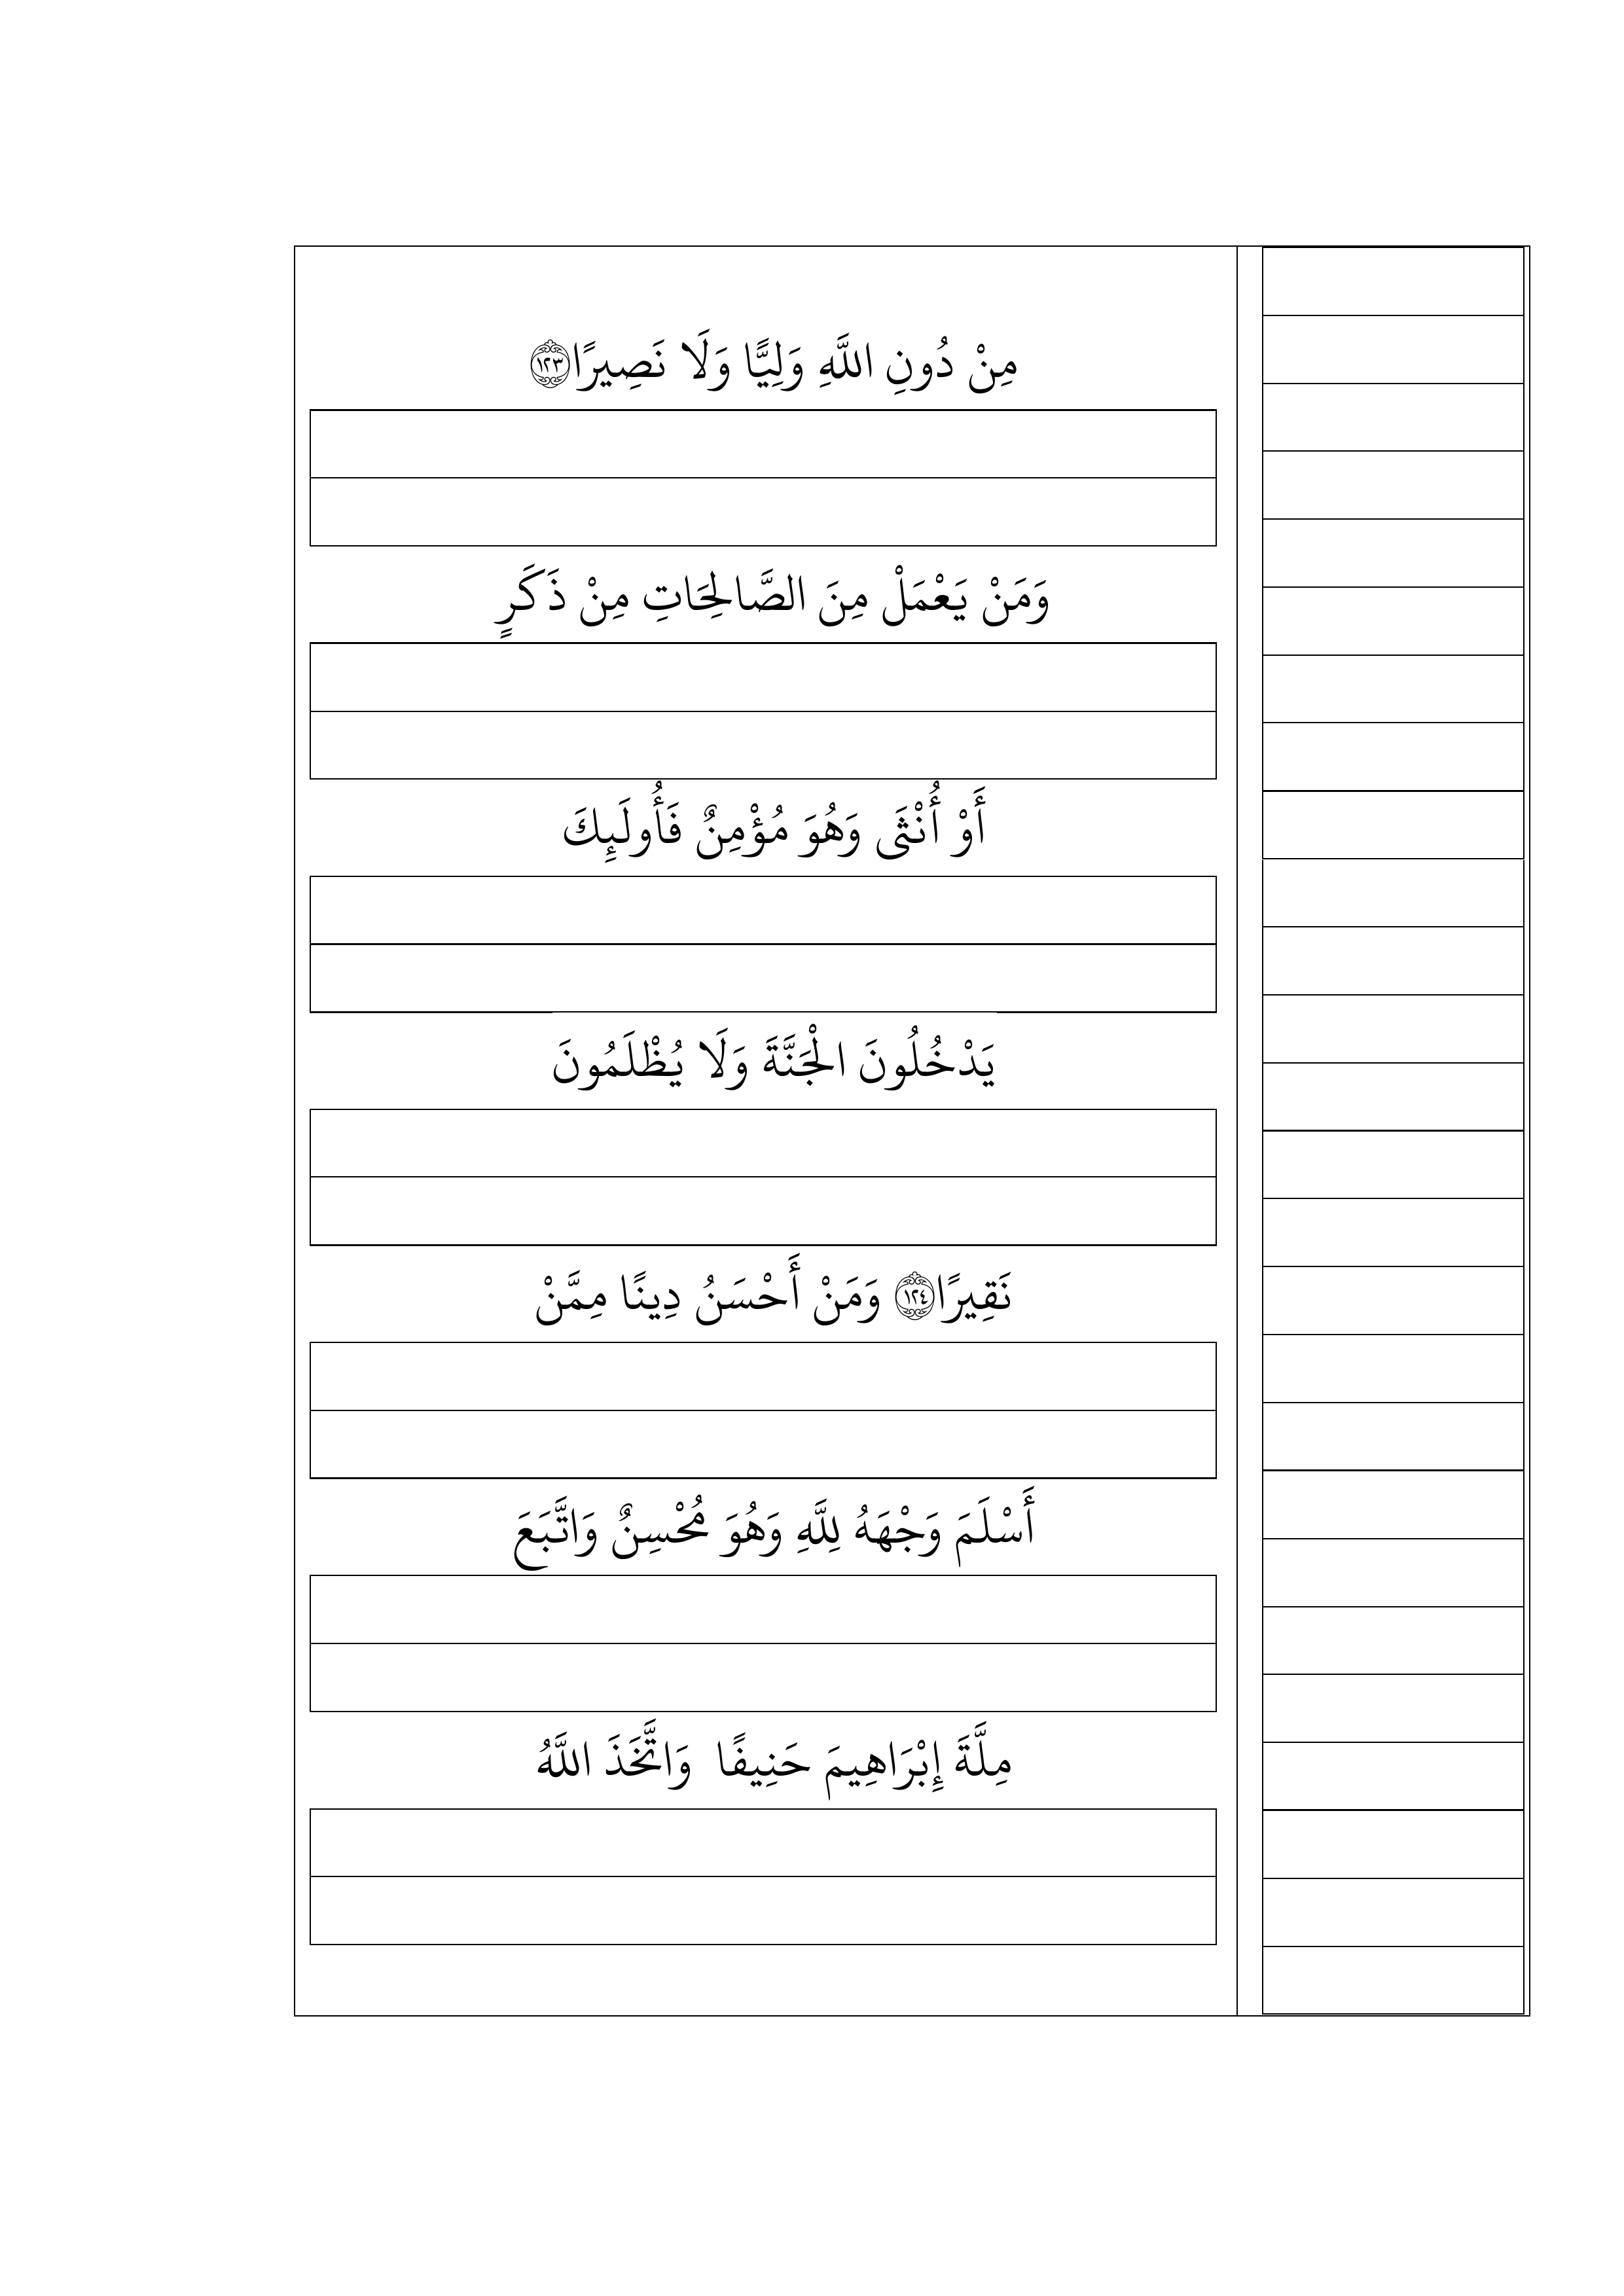 مِنْ دُونِ اللَّهِ وَلِيًّا وَلَا نَصِيرًا ﴿١٢٣﴾
وَمَنْ يَعْمَلْ مِنَ الصَّالِحَاتِ مِنْ ذَكَرٍ
أَوْ أُنْثَى وَهُوَ مُؤْمِنٌ فَأُولَئِكَ
يَدْخُلُونَ الْجَنَّةَ وَلَا يُظْلَمُونَ
نَقِيرًا ﴿١٢٤﴾ وَمَنْ أَحْسَنُ دِينًا مِمَّنْ
أَسْلَمَ وَجْهَهُ لِلَّهِ وَهُوَ مُحْسِنٌ وَاتَّبَعَ
مِلَّةَ إِبْرَاهِيمَ حَنِيفًا وَاتَّخَذَ اللَّهُ